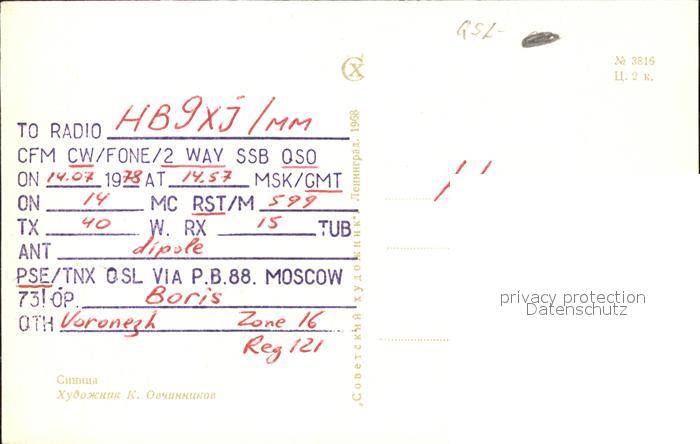 QSL-
№ 3816
Ц. 2 к.
TO RADIO HB9XJ/MM
CFM CW/FONE/2 WAY SSB QSO
ON 14.07 1978 AT 14.57 MSK/GMT
ON 14 MC RST/M 599
TX 40 W. RX 15 TUB
ANT dipole
PSE/TNX QSL VIA P.B.88. MOSCOW
73! OP. Boris
QTH Voronezh Zone 16
Reg 121
Синица
Художник К. Овчинников
„Советский художник" Ленинград, 1968
privacy protection
Datenschutz